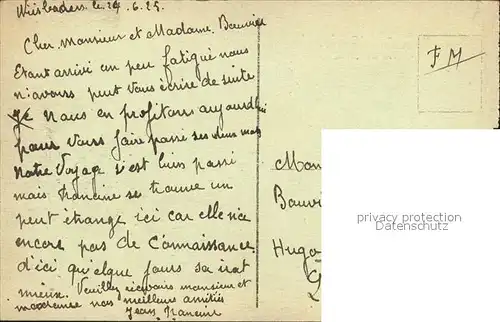 Wiesbaden le 24.6.25.
Cher Monsieur et Madame. Bauvier
Etant arrivé un peu fatigué nous
n'avons peut vous écrire de suite
Nous en profitons aujourd'hui
pour vous faire passé ses deux mots
Notre Voyage s'est bien passé
mais Francine se trouve un
peut étrange ici car elle n'a
encore pas de Connaissance.
d'ici quelque jours sa irat
mieux. Veuillez recevoir monsieur et
madame nos meilleurs amitiés
Jean Francine
FM
Mon
Bauvi
Hugo
privacy protection
www.ansichtskarten-lexikon.de